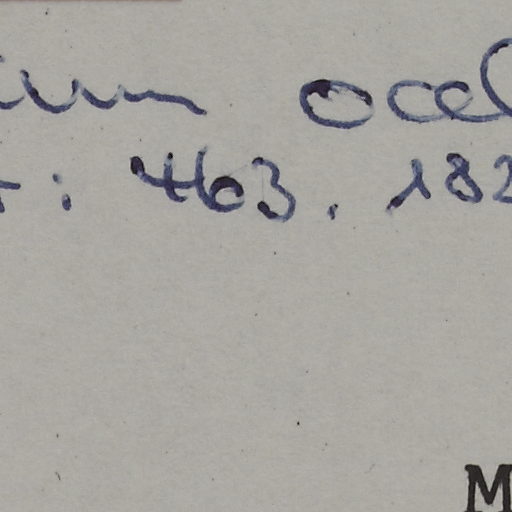 ium ocel
: 463. 182
M